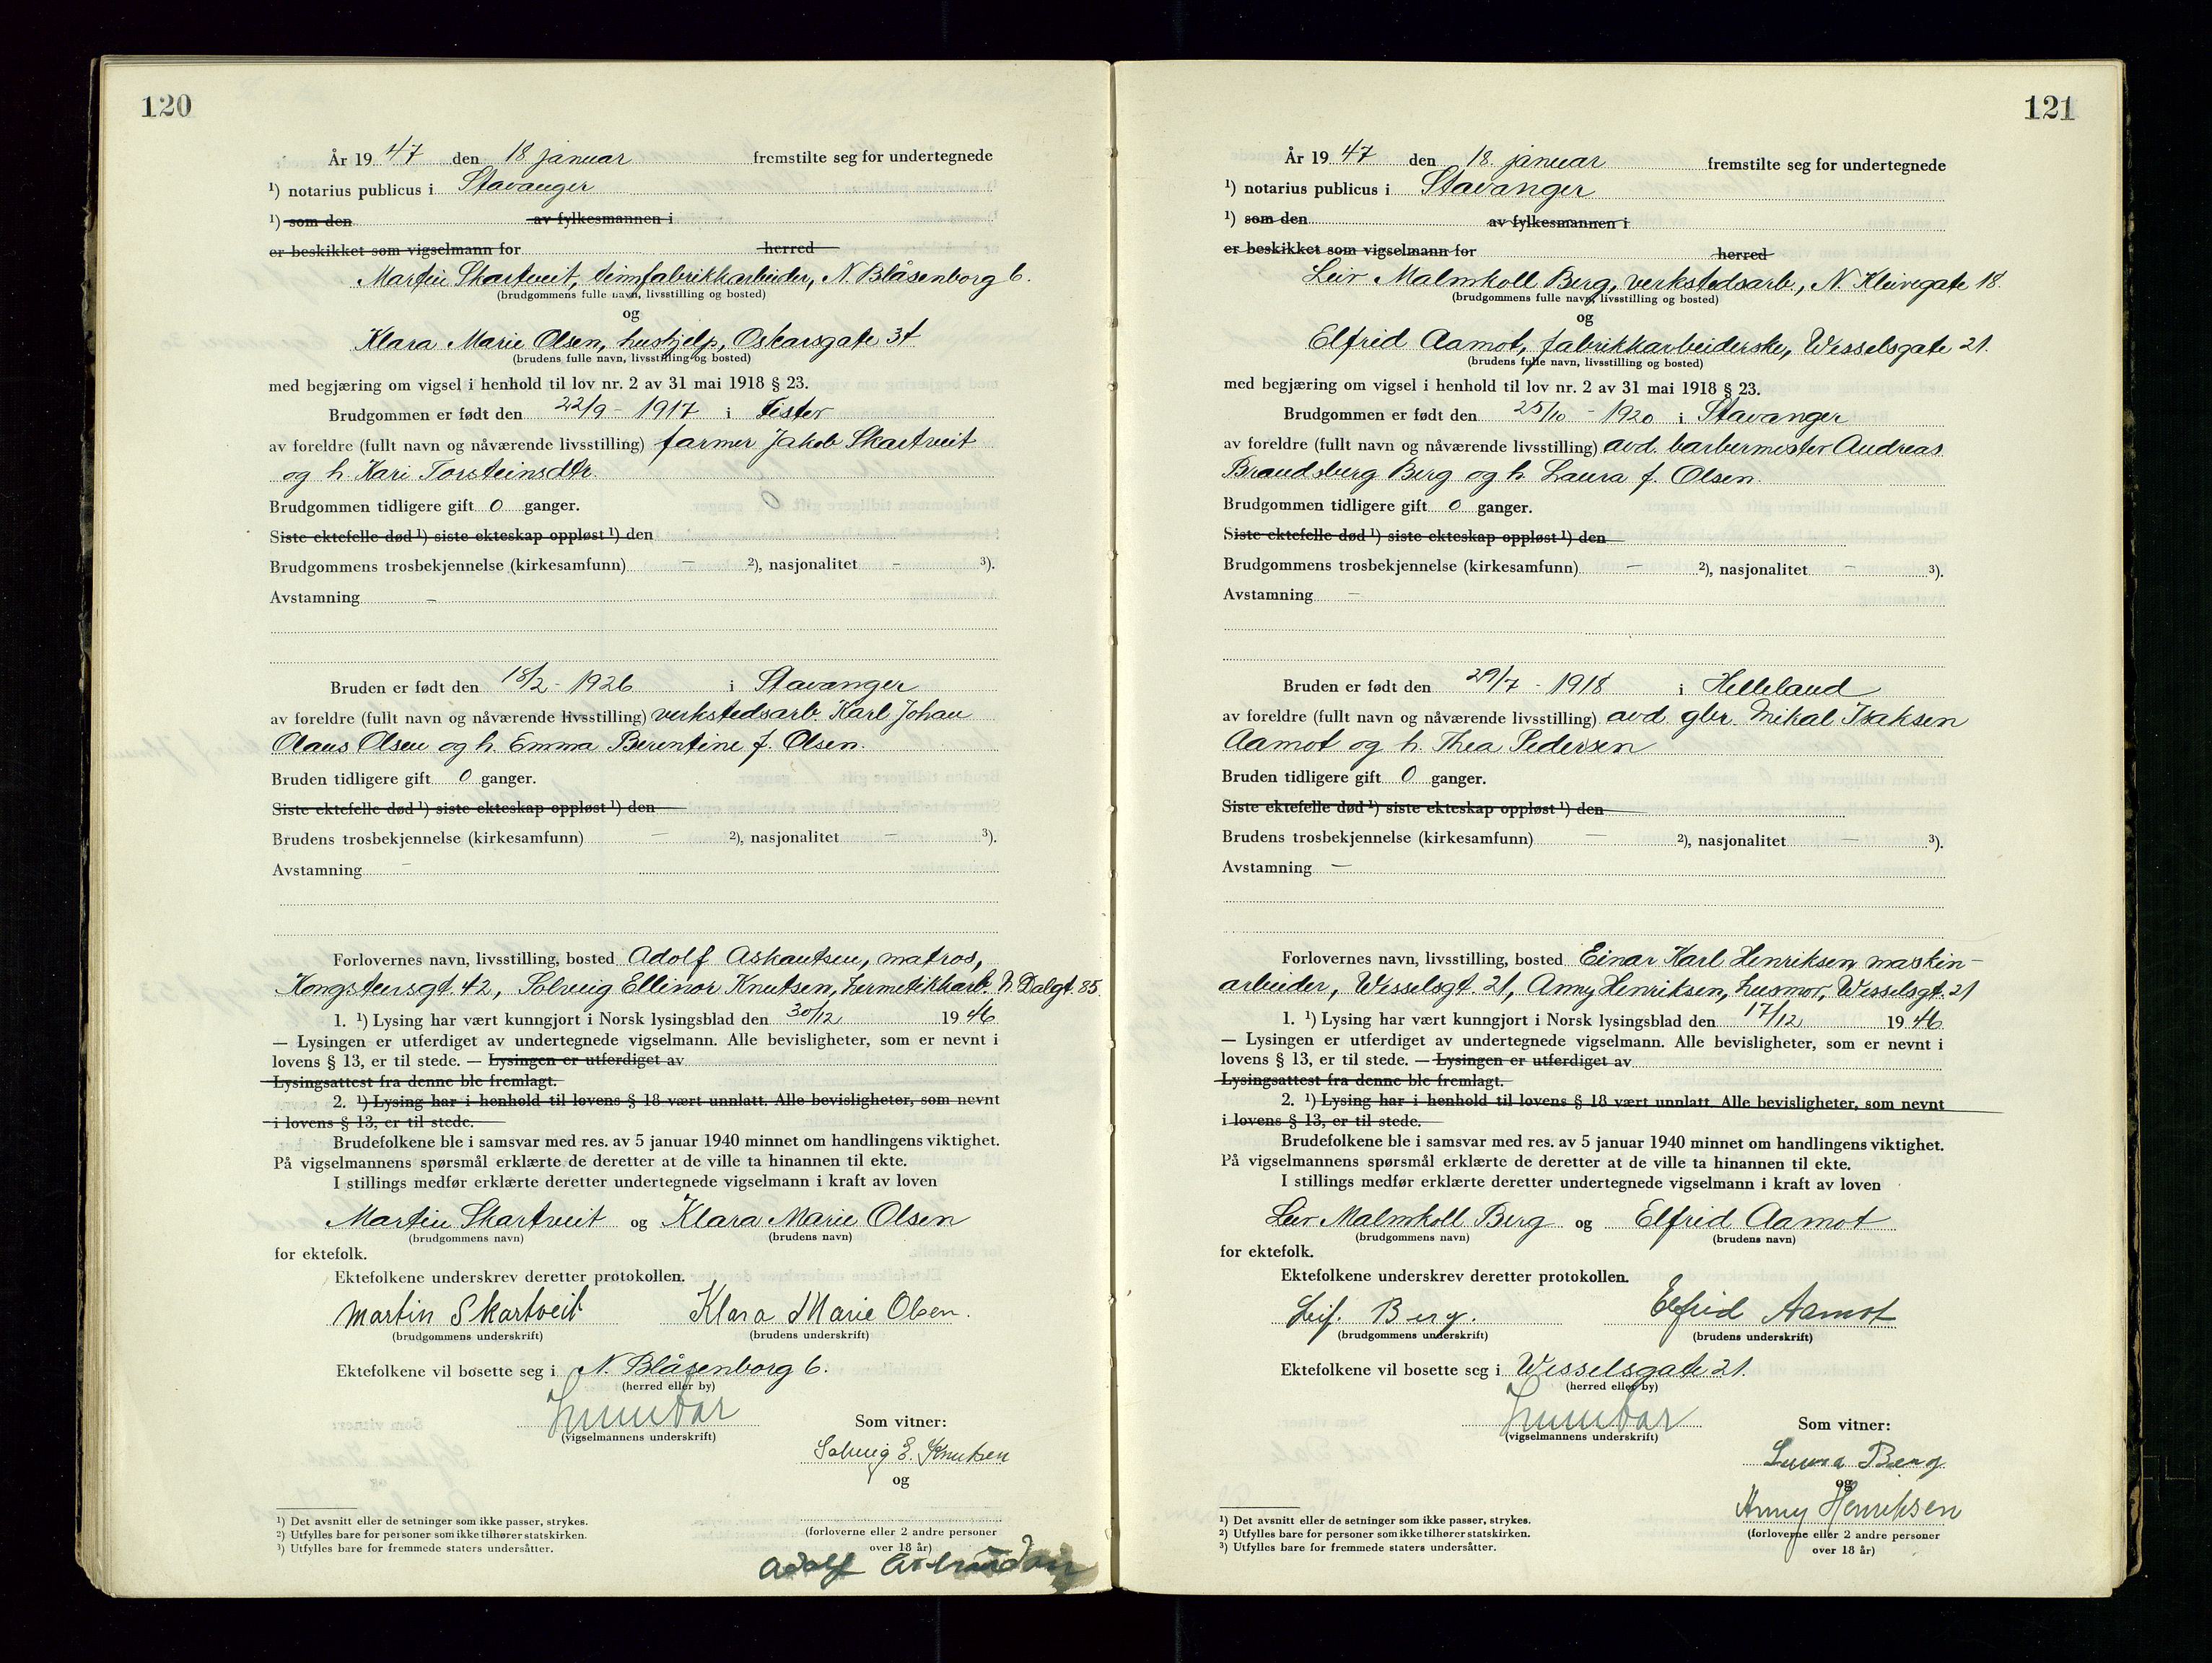 120
År 19 47 den 18 januar fremstilte seg for undertegnede
¹) notarius publicus i Stavanger
¹) som den av fylkesmannen i
er beskikket som vigselmann for herred
Martin Skartveit, N. Blåsenborg 6.
(brudgommens fulle navn, livsstilling og bosted)
og
Klara Marie Olsen, hushjelp, Oskarsgate 34
(brudens fulle navn, livsstilling og bosted)
med begjæring om vigsel i henhold til lov nr. 2 av 31 mai 1918 § 23.
Brudgommen er født den 22/9 - 1917 i
av foreldre (fullt navn og nåværende livsstilling) farmer Jakob Skartveit
og h. Kari Torsteinsdtr.
Brudgommen tidligere gift 0 ganger.
Siste ektefelle død ¹) siste ekteskap oppløst ¹) den
Brudgommens trosbekjennelse (kirkesamfunn) — ²), nasjonalitet — ³).
Avstamning —
Bruden er født den 18/2 - 1926 i Stavanger
av foreldre (fullt navn og nåværende livsstilling) verkstedsarb. Karl Johan
Olaus Olsen og h. Emma Berentine f. Olsen.
Bruden tidligere gift 0 ganger.
Siste ektefelle død ¹) siste ekteskap oppløst ¹) den
Brudens trosbekjennelse (kirkesamfunn) — ²), nasjonalitet — ³).
Avstamning —
Forlovernes navn, livsstilling, bosted Adolf Askautsen, matros,
Kongsteinsgt. 42, Solveig Ellinor Knutsen, hermetikkarb. N. Dalgt. 35.
1. ¹) Lysing har vært kunngjort i Norsk lysingsblad den 30/12 19 46
— Lysingen er utferdiget av undertegnede vigselmann. Alle bevisligheter, som er nevnt i
lovens § 13, er til stede. — Lysingen er utferdiget av
Lysingsattest fra denne ble fremlagt.
2. ¹) Lysing har i henhold til lovens § 18 vært unnlatt. Alle bevisligheter, som nevnt
i lovens § 13, er til stede.
Brudefolkene ble i samsvar med res. av 5 januar 1940 minnet om handlingens viktighet.
På vigselmannens spørsmål erklærte de deretter at de ville ta hinannen til ekte.
I stillings medfør erklærte deretter undertegnede vigselmann i kraft av loven
Martin Skartveit og Klara Marie Olsen
(brudgommens navn) (brudens navn)
for ektefolk.
Ektefolkene underskrev deretter protokollen.
Martin Skartveit Klara Marie Olsen.
(brudgommens underskrift) (brudens underskrift)
Ektefolkene vil bosette seg i N. Blåsenborg 6.
(herred eller by)
(vigselmannens underskrift)
Som vitner:
Solveig E. Knutsen
og
(forloverne eller 2 andre personer
over 18 år)
Adolf
¹) Det avsnitt eller de setninger som ikke passer, strykes.
²) Utfylles bare for personer som ikke tilhører statskirken.
³) Utfylles bare for fremmede staters undersåtter.
121
År 19 47 den 18. januar fremstilte seg for undertegnede
¹) notarius publicus i Stavanger
¹) som den av fylkesmannen i
er beskikket som vigselmann for herred
Leiv Malmkoll Berg, verkstedsarb., N. Kleivegate 18.
(brudgommens fulle navn, livsstilling og bosted)
og
Elfrid Aamot, fabrikkarbeiderske, Wesselsgate 21.
(brudens fulle navn, livsstilling og bosted)
med begjæring om vigsel i henhold til lov nr. 2 av 31 mai 1918 § 23.
Brudgommen er født den 25/10 - 1920 i Stavanger
av foreldre (fullt navn og nåværende livsstilling) avd. barbermester Andreas
Brandsberg Berg og h. Laura f. Olsen.
Brudgommen tidligere gift 0 ganger.
Siste ektefelle død ¹) siste ekteskap oppløst ¹) den
Brudgommens trosbekjennelse (kirkesamfunn) — ²), nasjonalitet — ³).
Avstamning —
Bruden er født den 29/7 - 1918 i Helleland
av foreldre (fullt navn og nåværende livsstilling) avd. gbr. Mikal Isaksen
Aamot og h. Thea Pedersen
Bruden tidligere gift 0 ganger.
Siste ektefelle død ¹) siste ekteskap oppløst ¹) den
Brudens trosbekjennelse (kirkesamfunn) — ²), nasjonalitet — ³).
Avstamning —
Forlovernes navn, livsstilling, bosted Einar Karl Henriksen, maskin-
arbeider, Wesselsgt. 21, Anny Henriksen, husmor, Wesselsgt. 21
1. ¹) Lysing har vært kunngjort i Norsk lysingsblad den 17/12 19 46
— Lysingen er utferdiget av undertegnede vigselmann. Alle bevisligheter, som er nevnt i
lovens § 13, er til stede. — Lysingen er utferdiget av
Lysingsattest fra denne ble fremlagt.
2. ¹) Lysing har i henhold til lovens § 18 vært unnlatt. Alle bevisligheter, som nevnt
i lovens § 13, er til stede.
Brudefolkene ble i samsvar med res. av 5 januar 1940 minnet om handlingens viktighet.
På vigselmannens spørsmål erklærte de deretter at de ville ta hinannen til ekte.
I stillings medfør erklærte deretter undertegnede vigselmann i kraft av loven
Leiv Malmkoll Berg og Elfrid Aamot
(brudgommens navn) (brudens navn)
for ektefolk.
Ektefolkene underskrev deretter protokollen.
Leif. Berg. Elfrid Aamot
(brudgommens underskrift) (brudens underskrift)
Ektefolkene vil bosette seg i Wesselsgate 21.
(herred eller by)
(vigselmannens underskrift)
Som vitner:
Laura Berg
og
Anny Henriksen
(forloverne eller 2 andre personer
over 18 år)
¹) Det avsnitt eller de setninger som ikke passer, strykes.
²) Utfylles bare for personer som ikke tilhører statskirken.
³) Utfylles bare for fremmede staters undersåtter.